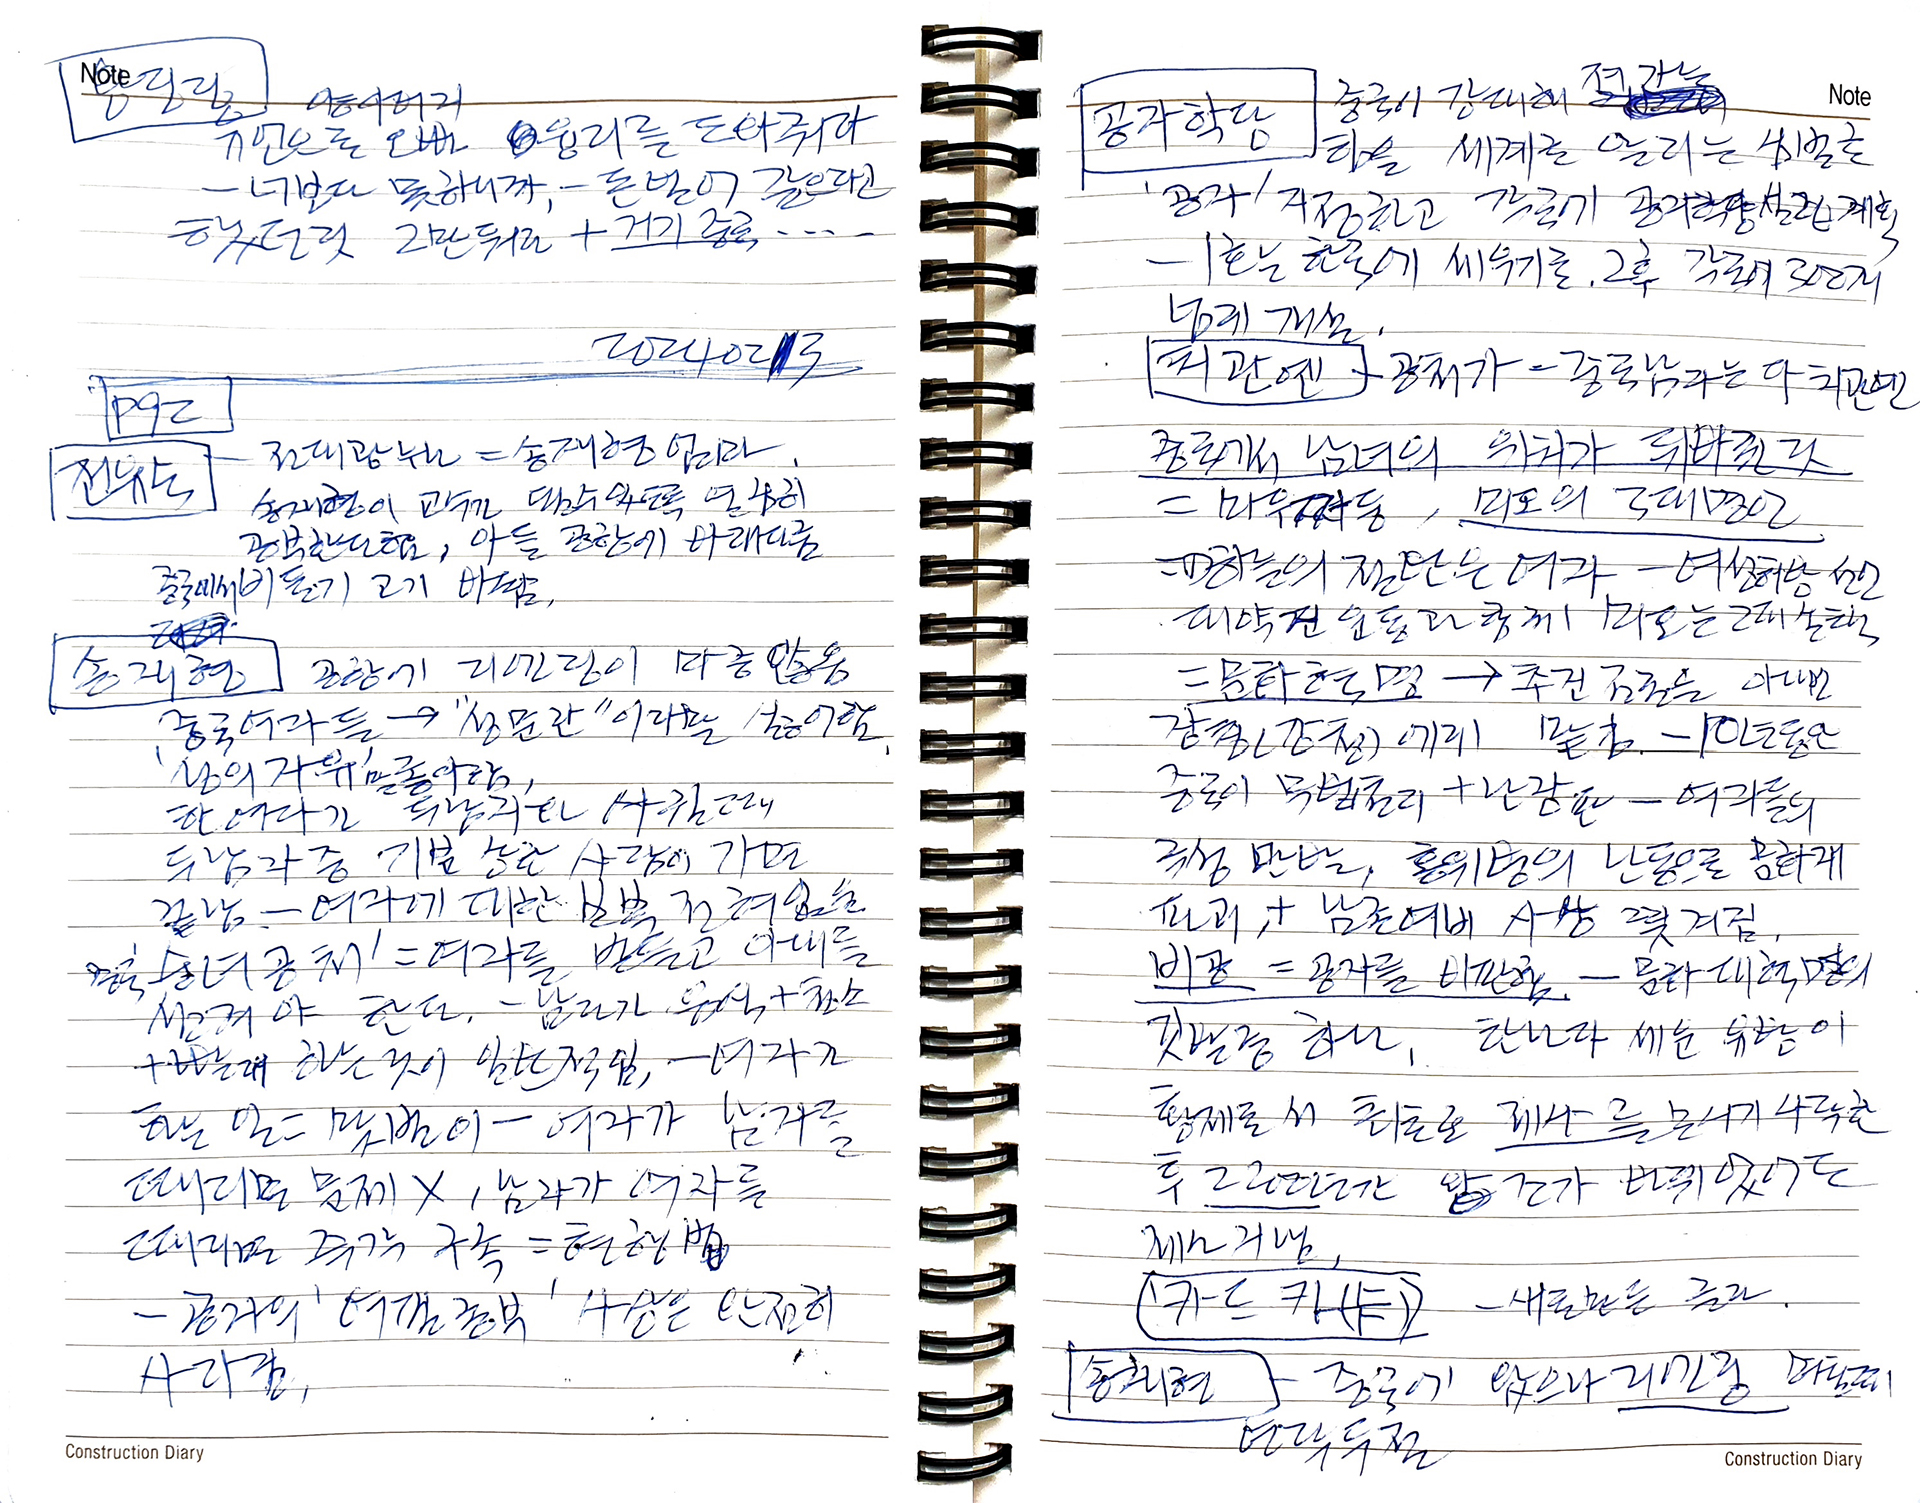 Note
유언으로 오빠 용리를 도와줘라
- 너보다 못하니까, - 돈 벌어 갚으라고
했던 것 그만둬라 + 거기 중국 ....
20240213
P92
전유노
- 전대광 부인 = 송재현 엄마라.
송재현이 교수가 될 수 있도록 열심히
공부한다 함, 아들 공항에 바래다줌
중국에서 비둘기 고기 바침,
송재현 공항에 리옌링이 마중 나옴
중국여자들 → "생문란" 이라 말 싫어함,
'성의 자유' 말 좋아함,
한 여자가 두 남자와 사귈 때
두 남자 중 기분 상한 사람이 가면
끝남 - 여자에 대한 보복 전혀 없음
중국 '손녀공처' = 여자를 받들고 아내를
섬겨야 한다. - 남자가 음식 + 청소
+ 빨래 하는 것이 일반적임, - 여자가
하는 일 = 맞벌이 - 여자가 남자를
때리면 문제 X, 남자가 여자를
때리면 즉각 구속 = 현행법
- 공자의 '여필종부' 사상은 완전히
사라짐,
Construction Diary
Note
공자학당 중국이 강대해
힘을 세계로 알리는 심벌로
'공자' 지정하고 각국에 공자학당 설립 계획
- 1호는 한국에 세우기로. 그후 각국에 300개
넘게 개설.
처관엔 - 공처가 - 중국남자는 다 처관엔
중국에서 남녀의 위치가 뒤바뀐 것
= 마오쩌둥, 마오의 3대 명언
= 하늘의 절반은 여자 - 여성해방 선언
대약진 운동과 함께 마오는 그때 실행
= 문화혁명 → 조건
장칭(강청)에게 맡김. - 10년 동안
중국이 무법천지 + 난장판 - 여자들의
극성 만발, 홍위병의 난동으로 공자 기개
파괴, + 남존여비 사상 쫓겨짐,
비공 = 공자를 비판함, - 문화대혁명의
깃발 중 하나, 한나라 세운 유방이
황제로서 최초로 제사를 모시기 시작한
후 그 때마다 왕조가 바뀌었어도
제사 지냄,
카드 카(卡) - 새로 만든 글자.
송재현 - 중국에 왔으나 리옌링
연락두절
Construction Diary